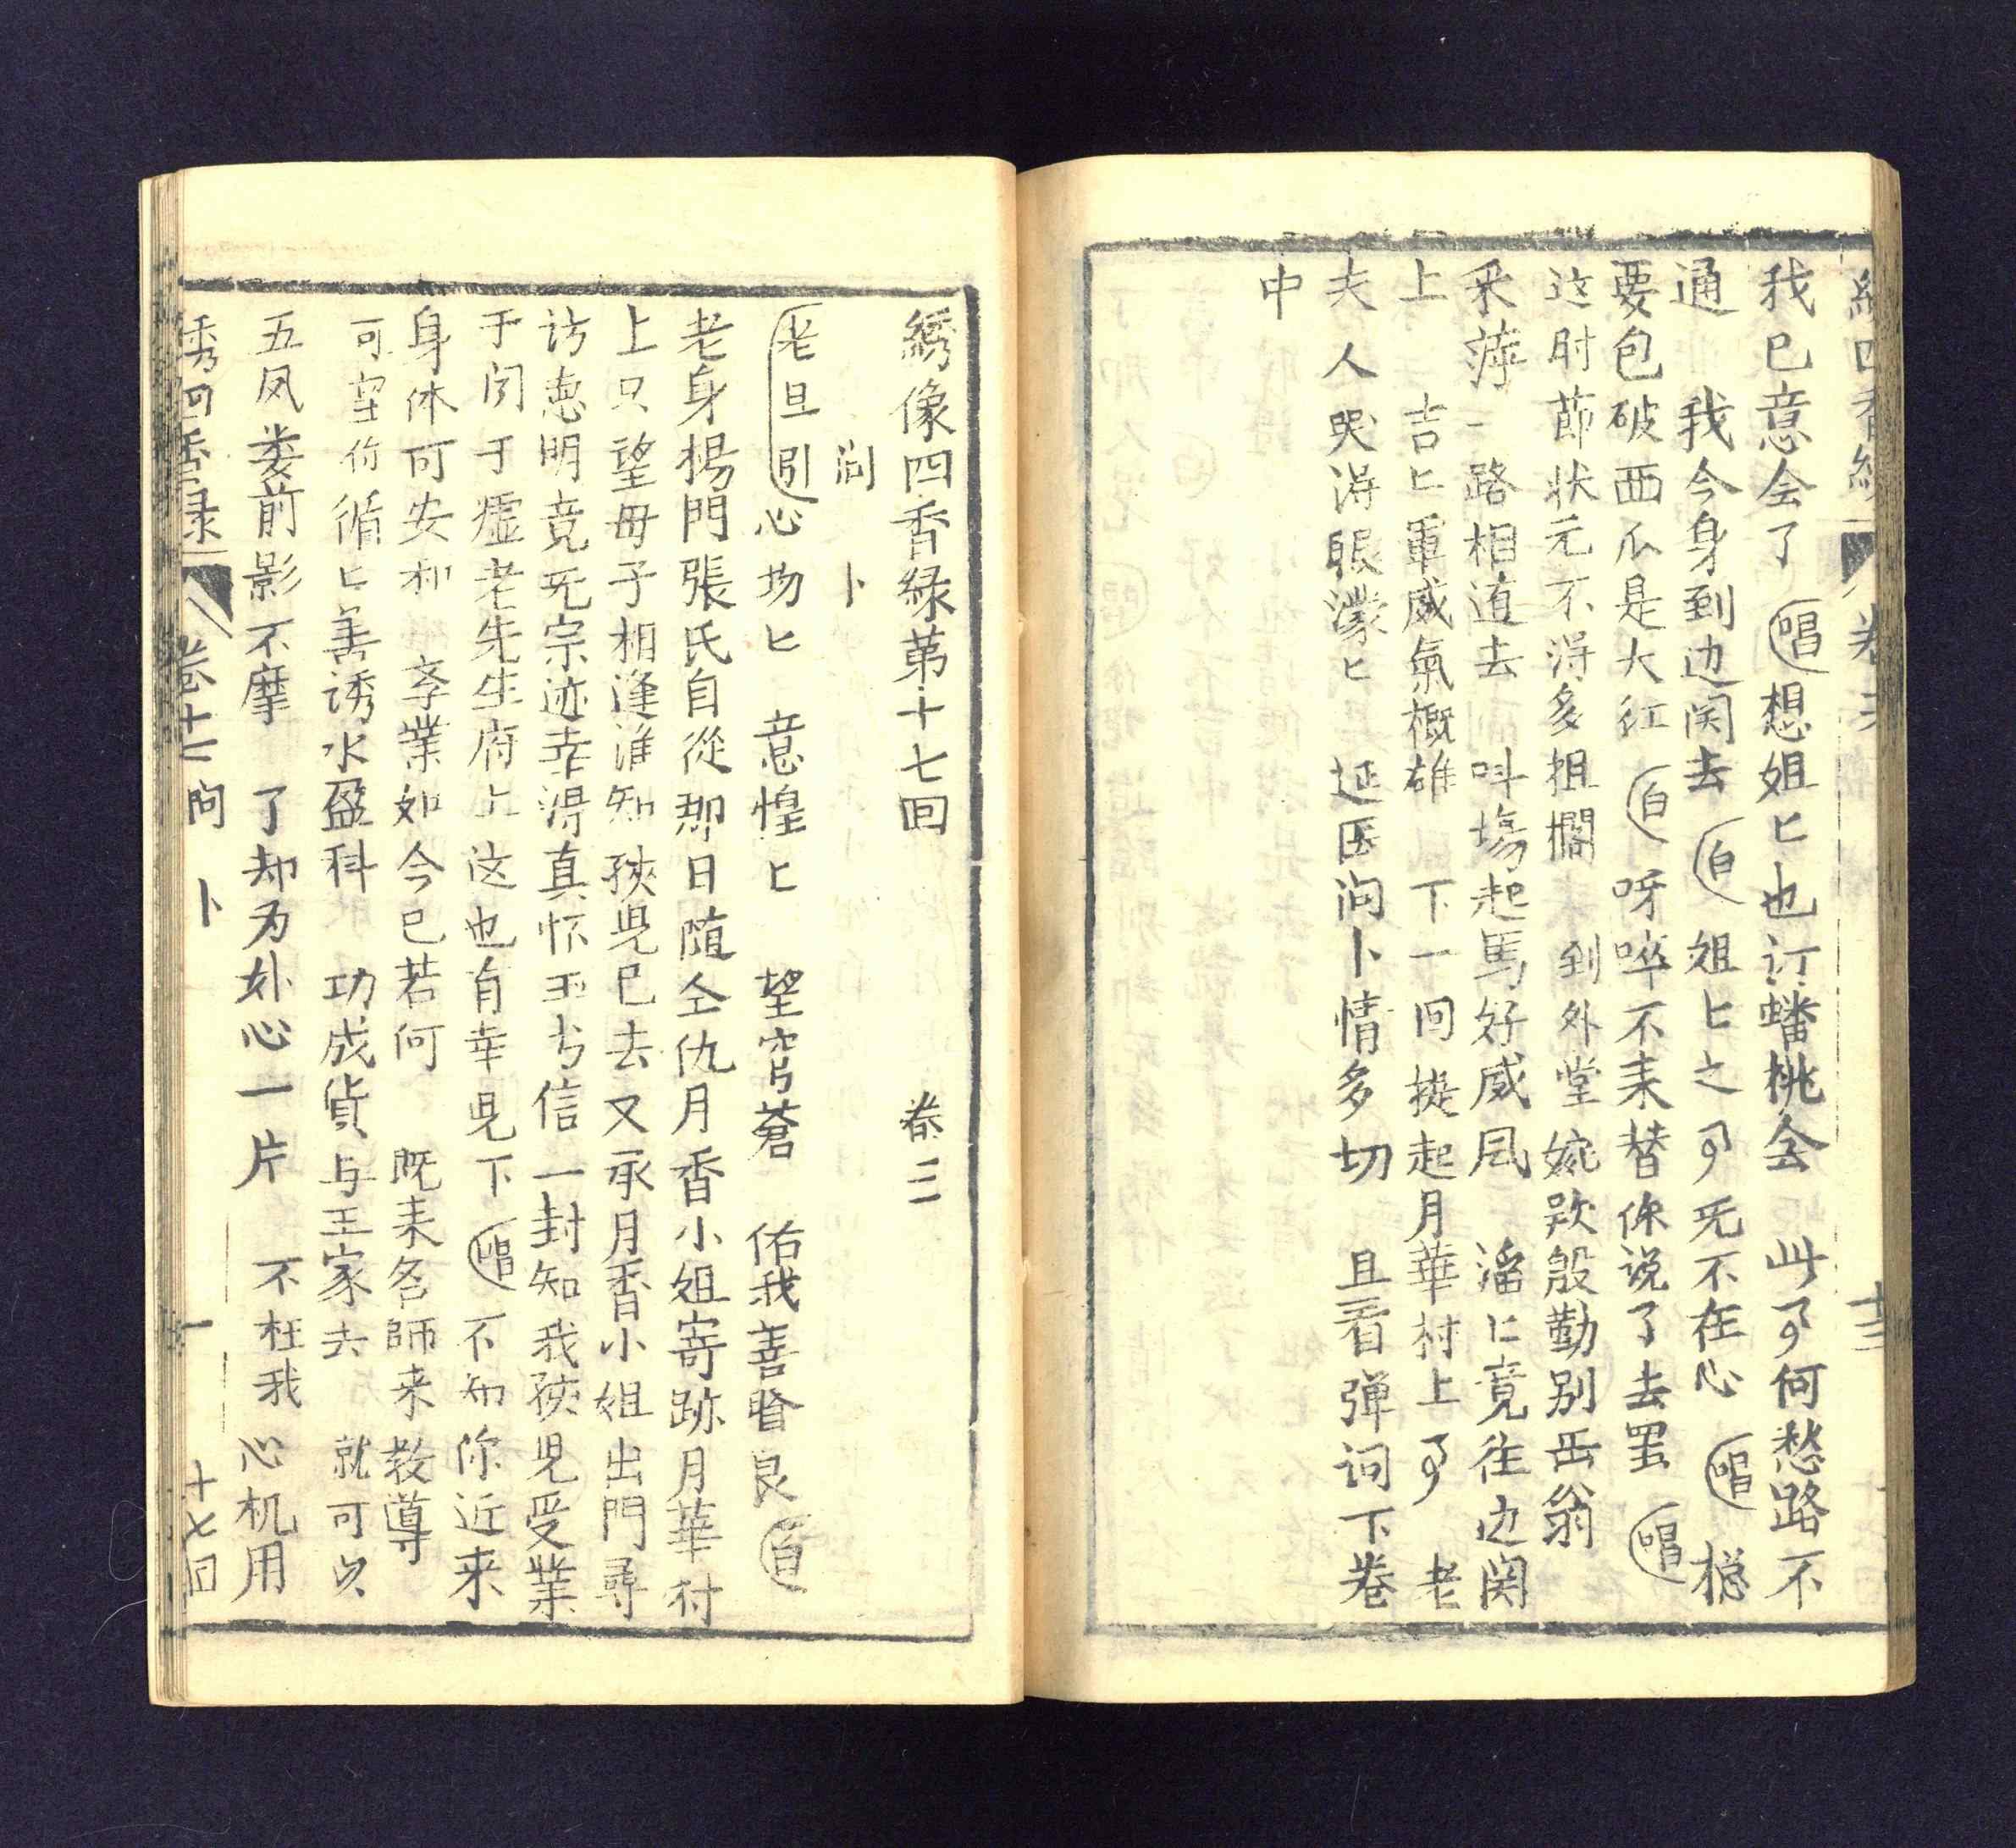 我已意会了 唱 想姐匕也订蟠桃会 此了何愁路不
通 我今身到边関去 白 姐匕之了死不在心 唱 揔
要包破西瓜是大红 白 呀啐不来替你说了去罢 唱
这时莭状元不淂多担擱 到外堂婉欵殷勤别岳翁
釆萍一路相道去 呌塲起馬好威风 滔匕竟往边関
上 吉匕軍威氣概雄 下一回提起月華村上了 老
夫人哭淂眼濛匕 延医问卜情多切 且看弹词下卷
中
綉像四香緑苐十七回 卷三
问 卜
老旦引 心切匕 意惶匕 望穹蒼 佑我善眷良 白
老身楊門張氏自從那日随仝仇月香小姐寄跡月華村
上只望毋子相逢谁知孩児已去又承月香小姐出門尋
访恵明竟死宗迹幸淂真怀玉书信一封知我孩児受業
于闵于虚老先生府上这也有幸見下 唱 不知你近来
身体可安和 斈業如今已若何 既来名師来教導
可望伱循匕善诱水盈科 功成货与王家去 就可以
五凤娄前影不摩 了却为外心一片 不枉我心机用
绣四香緑 卷十七 问卜 一 十七回